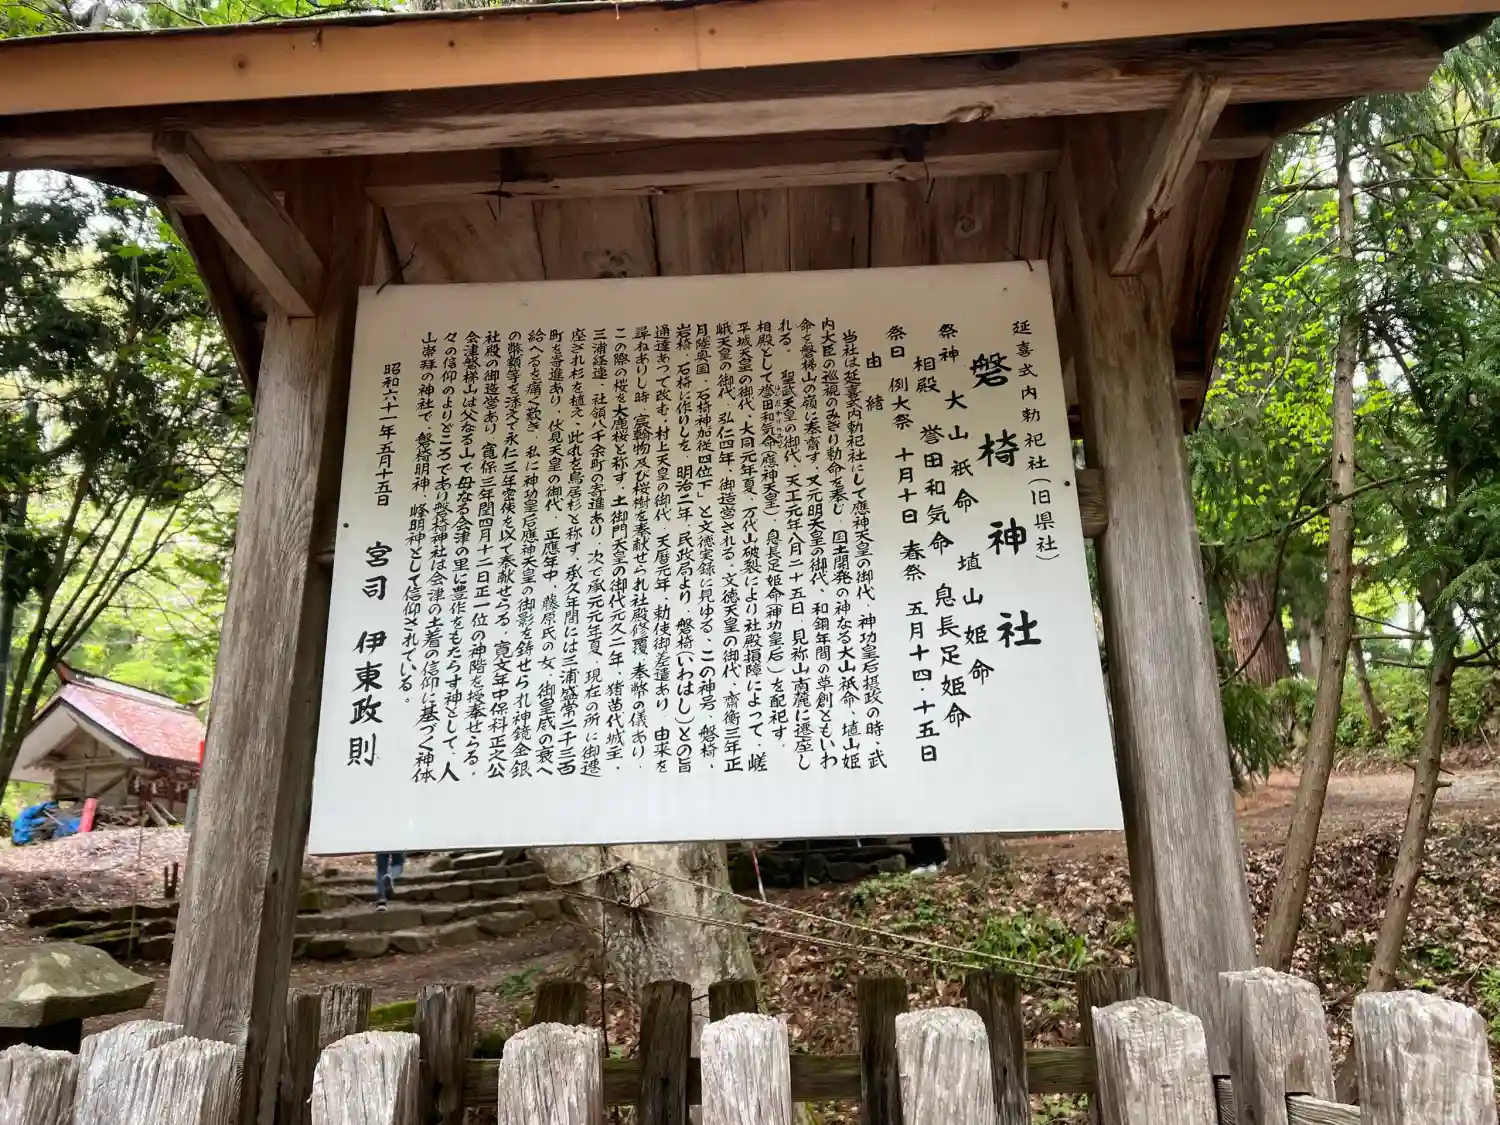 延喜式内勅祀社(旧県社)
磐椅神社
祭神 大山祇命 埴山姫命
相殿 誉田和気命 息長足姫命
祭日 例大祭 十月十日 春祭 五月十四・十五日
由緒
当社は延喜式内勅祀社にして應神天皇の御代、神功皇后摂政の時、武
内大臣の巡視のみぎり勅命を奉じ、国土開発の神なる大山祇命、埴山姫
命を磐梯山の嶺に奉斎す。又元明天皇の御代、和銅年間の草創ともいわ
れる。 聖武天皇の御代、天正元年八月二十五日、見祢山南麓に遷座し
相殿として誉田和気命(應神天皇)、息長足姫命(神功皇后)を配祀す。
平城天皇の御代、大同元年夏、万代山破裂により社殿損障によって、嵯
峨天皇の御代、弘仁四年、御造営される。文徳天皇の御代、齋衡三年正
月陸奥国、石椅神加従四位下」と文徳実録に見ゆる。この神号、磐椅、
岩椅、石椅に作りしを、明治二年、民政局より、磐椅(いわはし)との旨
通達あつて改む。村上天皇の御代、天暦元年、勅使御差遣あり、由来を
尋ねありし時、宸翰物及び桜樹を奉献せられ社殿修覆、奉幣の儀あり、
この際の桜を大鹿桜と称す。土御門天皇の御代元久二年、猪苗代城主、
三浦経連、社領八千余町の寄進あり、次で承元元年夏、現在の所に御遷
座され杉を植え、此れを鳥居杉と称す。承久年間には三浦盛常二千三百
町を寄進あり、伏見天皇の御代、正應年中、藤原氏の女、御皇威の衰へ
給へるを痛く歎き、私に神功皇后應神天皇の御影を鋳せられ神鏡金銀
の幣額等を添えて永仁三年密使を以て奉献せらる。寛文年中保科正之公
社殿の御造営あり、寛保三年閏四月十二日正一位の神階を授奉せらる。
会津磐梯山は父なる山で母なる会津の里に豊作をもたらす神として、人
々の信仰のよりどころであり磐椅神社は会津の土着の信仰に基づく神体
山崇拝の神社で、磐椅明神、峰明神として信仰されている。
昭和六十一年五月十五日
宮司 伊東政則